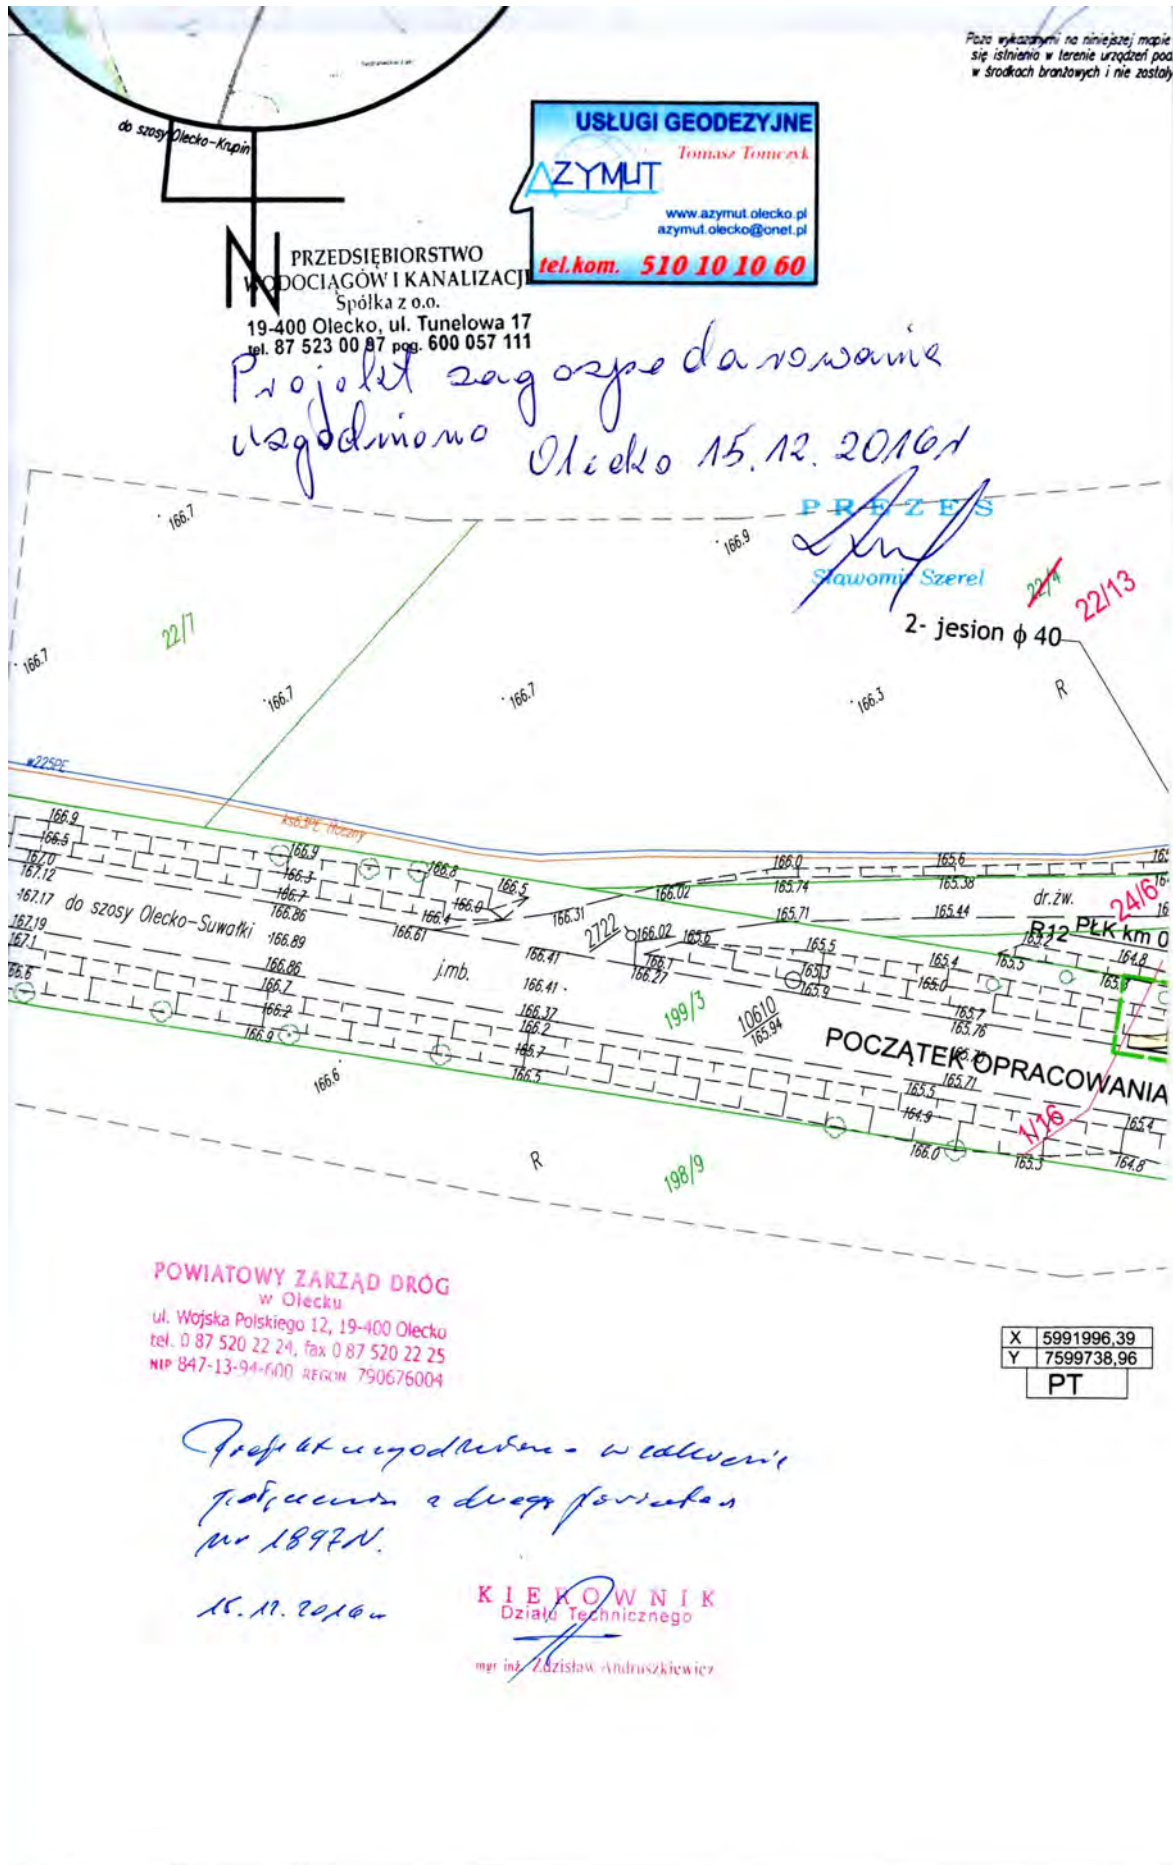 Poza wykazanymi na niniejszej mapie
się istnienia w terenie urządzeń pod
w środkach branżowych i nie zostały
do szosy Olecko-Krupin
USŁUGI GEODEZYJNE
Tomasz Tomczyk
AZYMUT
www.azymut.olecko.pl
azymut.olecko@onet.pl
tel.kom. 510 10 10 60
N
PRZEDSIĘBIORSTWO
WODOCIĄGÓW I KANALIZACJI
Spółka z o.o.
19-400 Olecko, ul. Tunelowa 17
tel. 87 523 00 87 pog. 600 057 111
Projekt zagospodarowania
uzgodniono Olecko 15.12.2016r
PREZES
Sławomir Szerel
166.7
166.9
22/4
22/13
22/7
2- jesion ϕ 40
166.7
166.7
166.7
166.3
R
w225PE
ks63PE tłoczny
166.9
166.5
167.0
167.12
166.9
166.3
166.7
166.86
166.8
166.0
166.4
166.61
166.5
166.31
166.02
166.0
165.74
165.71
165.6
165.38
165.44
dr.żw.
24/6
R12 PŁK km 0
167.17 do szosy Olecko-Suwałki
166.89
2722
166.02
165.6
165.5
165.4
165.5
164.8
167.19
167.1
166.6
166.86
166.7
166.2
166.9
j.mb.
166.41
166.41
166.37
166.2
165.7
166.5
166.1
166.27
165.3
165.9
165.0
165.7
165.76
199/3
10610
165.94
POCZĄTEK OPRACOWANIA
165.71
165.5
164.9
166.0
1/16
165.3
165.4
164.8
166.6
R
198/9
POWIATOWY ZARZĄD DRÓG
w Olecku
ul. Wojska Polskiego 12, 19-400 Olecko
tel. 0 87 520 22 24, fax 0 87 520 22 25
NIP 847-13-94-600 REGON 790676004
X 5991996,39
Y 7599738,96
PT
Projekt uzgodniono w zakresie
połączenia z drogą powiatową
nr 1897N.
15.12.2016r
KIEROWNIK
Działu Technicznego
mgr inż. Zdzisław Andruszkiewicz